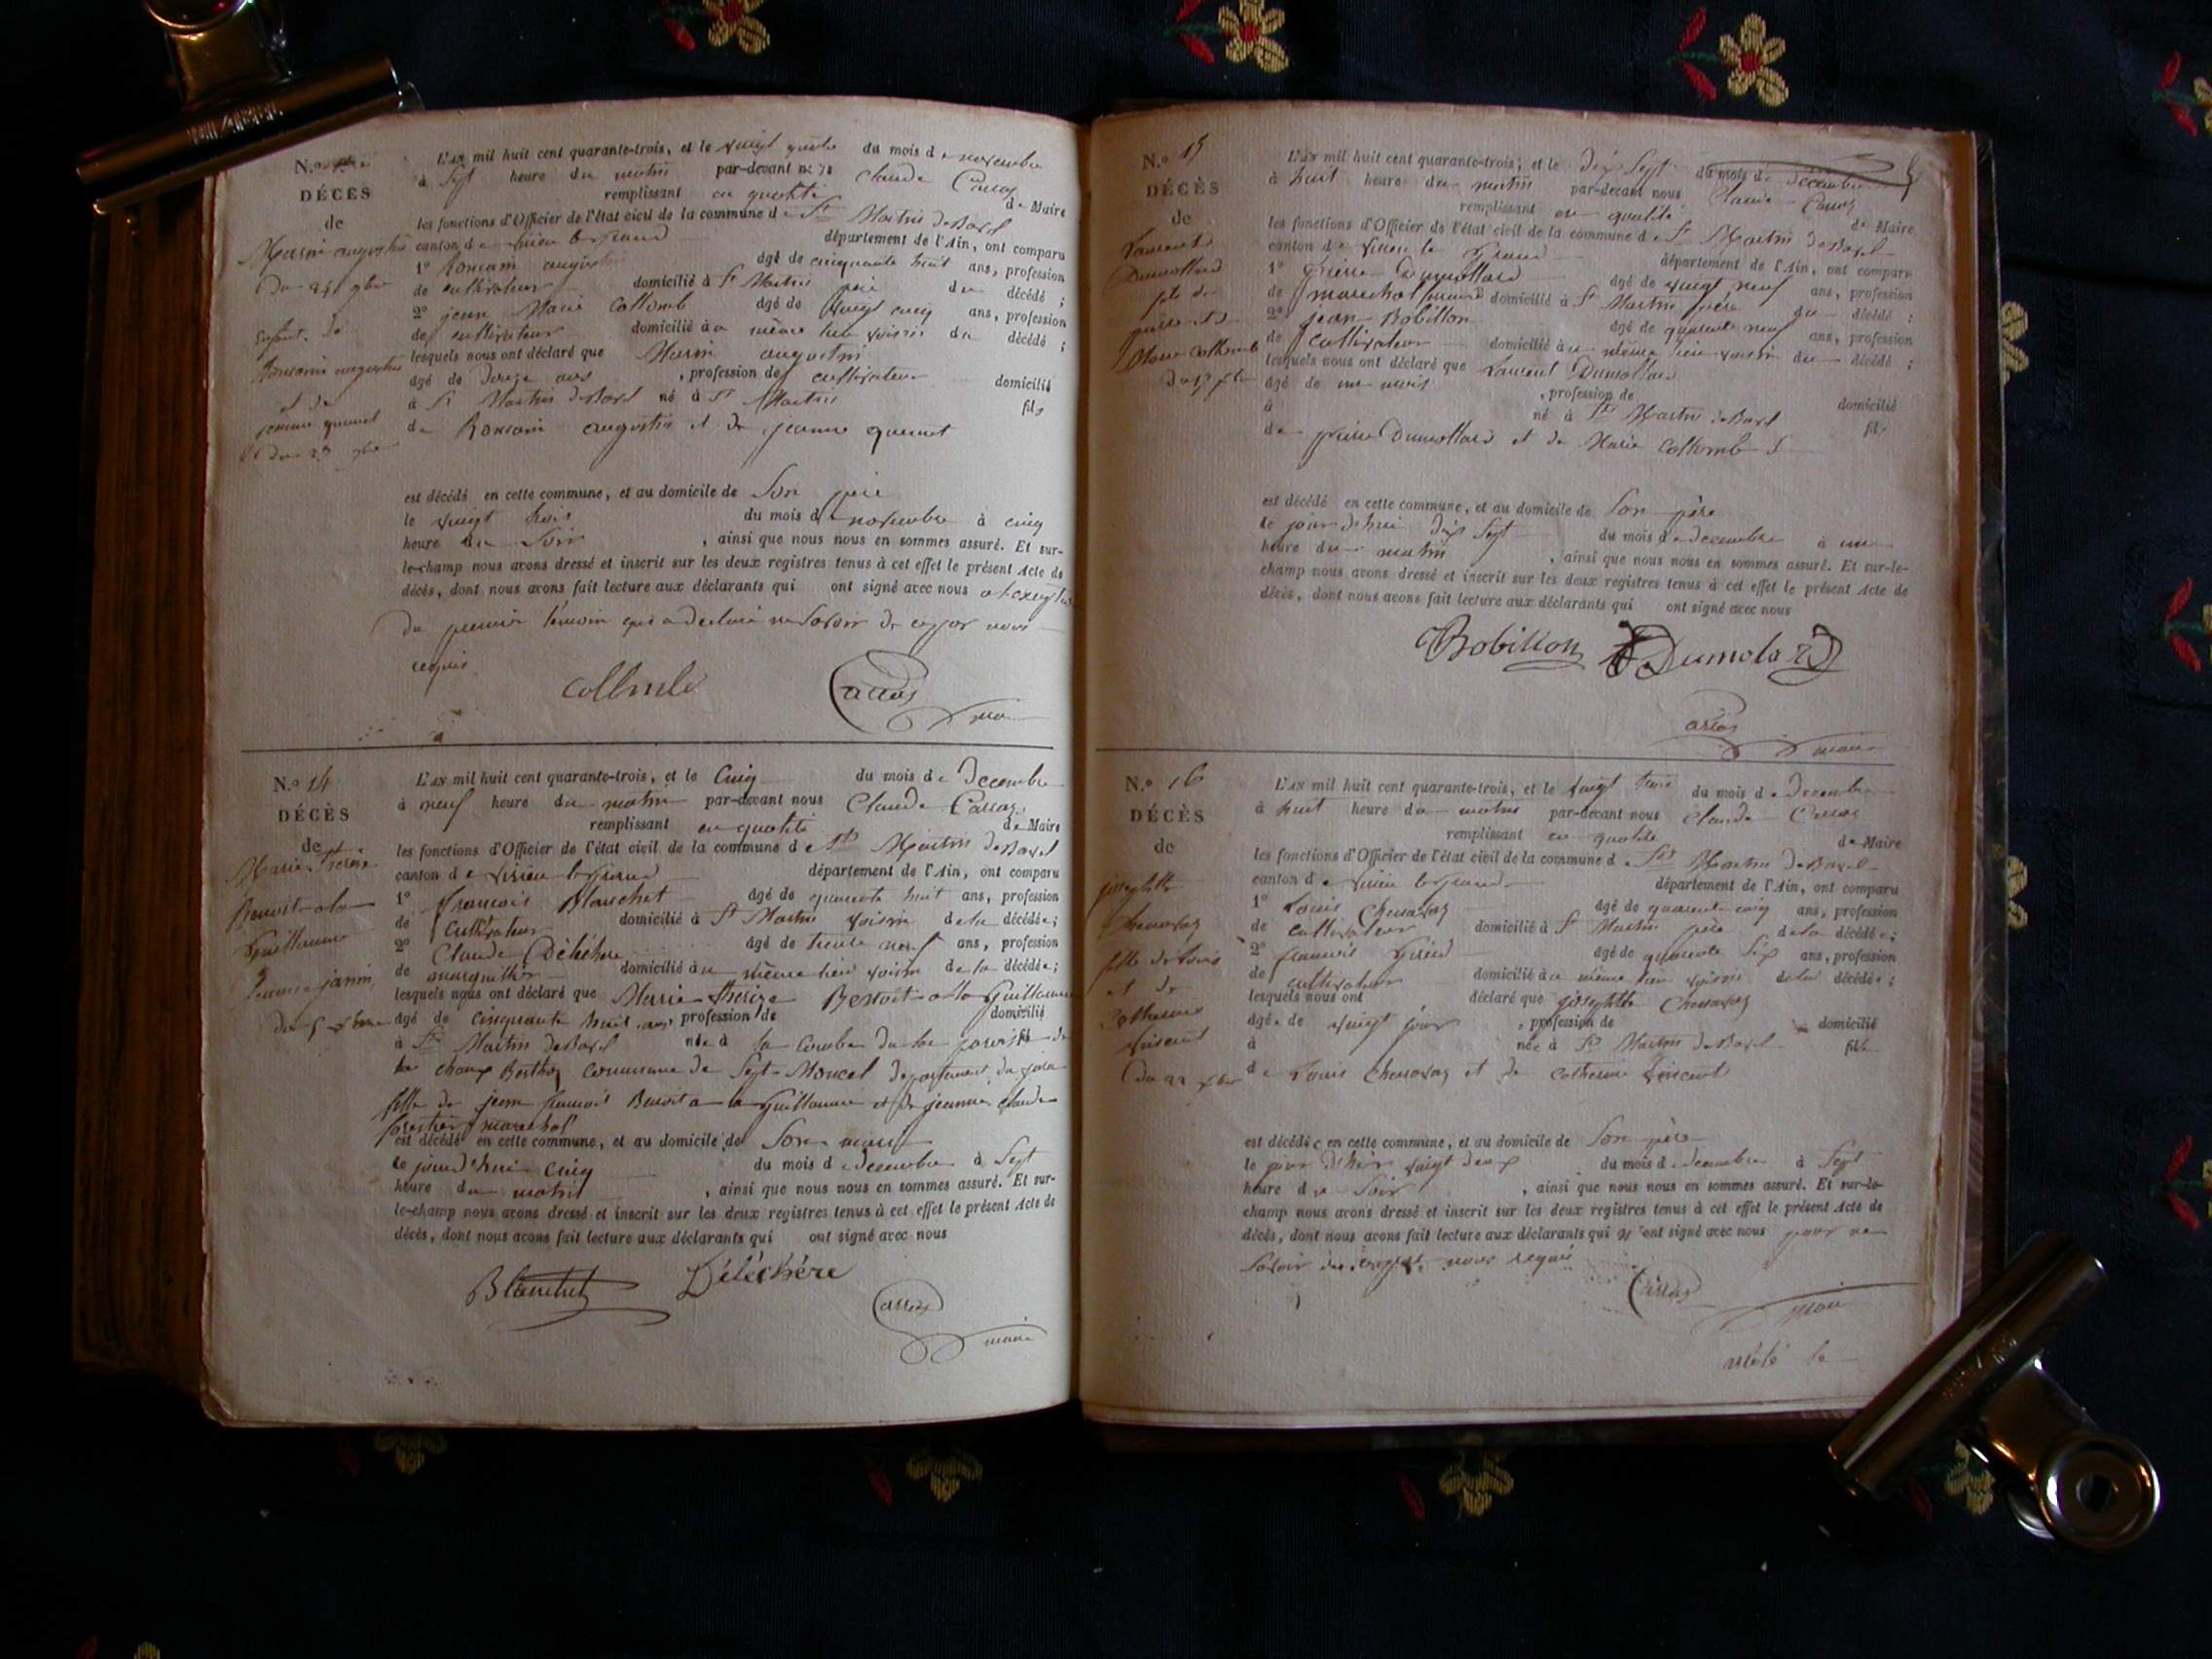 N.o
DÉCÈS
de
Marin augustin
du 24 9bre
enfant de
Romain augustin
et de
jeanne quemet
du 23 9bre
L'AN mil huit cent quarante-trois, et le vingt quatre du mois de novembre
à Sept heure du matin par-devant nous Claude Carraz
remplissant en qualité de Maire
les fonctions d'Officier de l'état civil de la commune de St Martin de Bavel
canton de virieu le grand département de l'Ain, ont comparu
1° Romain augustin âgé de cinquante huit ans, profession
de cultivateur domicilié à St Martin père du décédé ;
2° jean Marie Collomb âgé de vingt cinq ans, profession
de cultivateur domicilié au même lieu voisin du décédé ;
lesquels nous ont déclaré que Marin augustin
âgé de douze ans , profession de cultivateur domicilié
à St Martin de Bavel né à St Martin fils
de Romain augustin et de jeanne quemet
est décédé en cette commune, et au domicile de Son père
le vingt trois du mois de novembre à cinq
heure du Soir , ainsi que nous nous en sommes assuré. Et sur-
le-champ nous avons dressé et inscrit sur les deux registres tenus à cet effet le présent Acte de
décès, dont nous avons fait lecture aux déclarants qui ont signé avec nous
du premier témoin qui a déclaré ne savoir de ce
requis
Carraz
maire
N.o 14
DÉCÈS
de
Marie Thérèse
Benoit a la
Guillaume
du 5 xbre
L'AN mil huit cent quarante-trois, et le Cinq du mois de Decembre
à neuf heure du matin par-devant nous Claude Carraz
remplissant en qualité de Maire
les fonctions d'Officier de l'état civil de la commune de St Martin de Bavel
canton de virieu le grand département de l'Ain, ont comparu
1° francois Blanchet âgé de quarante huit ans, profession
de Cultivateur domicilié à St Martin voisin de la décédée;
2° Claude Déléchère âgé de trente neuf ans, profession
de domicilié au même lieu voisin de la décédée;
lesquels nous ont déclaré que Marie therèze Benoit a la Guillaume
âgé de cinquante huit ans profession de domicilié
à St Martin de Bavel née à la Combe du lac
la chaux Berthod commune de Sept-Moncel departement du jura
fille de jean francois Benoit a la Guillaume et de jeanne claude
est décédé en cette commune, et au domicile de Son mari
le jourd'hui cinq du mois de decembre à Sept
heure du matin , ainsi que nous nous en sommes assuré. Et sur-
le-champ nous avons dressé et inscrit sur les deux registres tenus à cet effet le présent Acte de
décès, dont nous avons fait lecture aux déclarants qui ont signé avec nous
Blanchet Déléchère
Carraz
maire
N.o 15
DÉCÈS
de
Laurent
Dumollard
fils de
pierre et de
Marie Collomb
du 17 xbre
L'AN mil huit cent quarante-trois; et le dix Sept du mois de décembre
à huit heure du matin par-devant nous Claude Carraz
remplissant en qualité de Maire
les fonctions d'Officier de l'état civil de la commune de St Martin de Bavel
canton de virieu le Grand département de l'Ain, ont comparu
1° pierre Dumollard âgé de vingt neuf ans, profession
de marechal domicilié à St Martin père du décédé ;
2° jean Bobillon âgé de quarante neuf ans, profession
de cultivateur domicilié au même lieu voisin du décédé ;
lesquels nous ont déclaré que Laurent Dumollard
âgé de un mois , profession de domicilié
à né à St Martin de Bavel fils
de pierre Dumollard et de Marie Collomb
est décédé en cette commune, et au domicile de Son père
le jour d'hui dix Sept du mois de decembre à une
heure du matin , ainsi que nous nous en sommes assuré. Et sur-le-
champ nous avons dressé et inscrit sur les deux registres tenus à cet effet le présent Acte de
décès, dont nous avons fait lecture aux déclarants qui ont signé avec nous
Bobillon Dumolard
Carraz
maire
N.o 16
DÉCÈS
de
josephte
Chenavaz
fille de Louis
et de
Catherine
vincent
du 22 xbre
L'AN mil huit cent quarante-trois, et le vingt trois du mois de Decembre
à huit heure du matin par-devant nous Claude Carraz
remplissant en qualité de Maire
les fonctions d'Officier de l'état civil de la commune de St Martin de Bavel
canton de virieu le grand département de l'Ain, ont comparu
1° Louis Chenavaz âgé de quarante cinq ans, profession
de cultivateur domicilié à St Martin père de la décédée;
2° francois âgé de quarante Six ans, profession
de cultivateur domicilié au même lieu voisin de la décédée;
lesquels nous ont déclaré que josephte Chenavaz
âgée de vingt jour , profession de domicilié
à née à St Martin de Bavel fille
de Louis Chenavaz et de Catherine Vincent
est décédée en cette commune, et au domicile de Son père
le jour d'hier vingt deux du mois de decembre à Sept
heure du Soir , ainsi que nous nous en sommes assuré. Et sur-le-
champ nous avons dressé et inscrit sur les deux registres tenus à cet effet le présent Acte de
décès, dont nous avons fait lecture aux déclarants qui n'ont signé avec nous pour ne
Savoir de requis
Carraz
maire
arrêté le